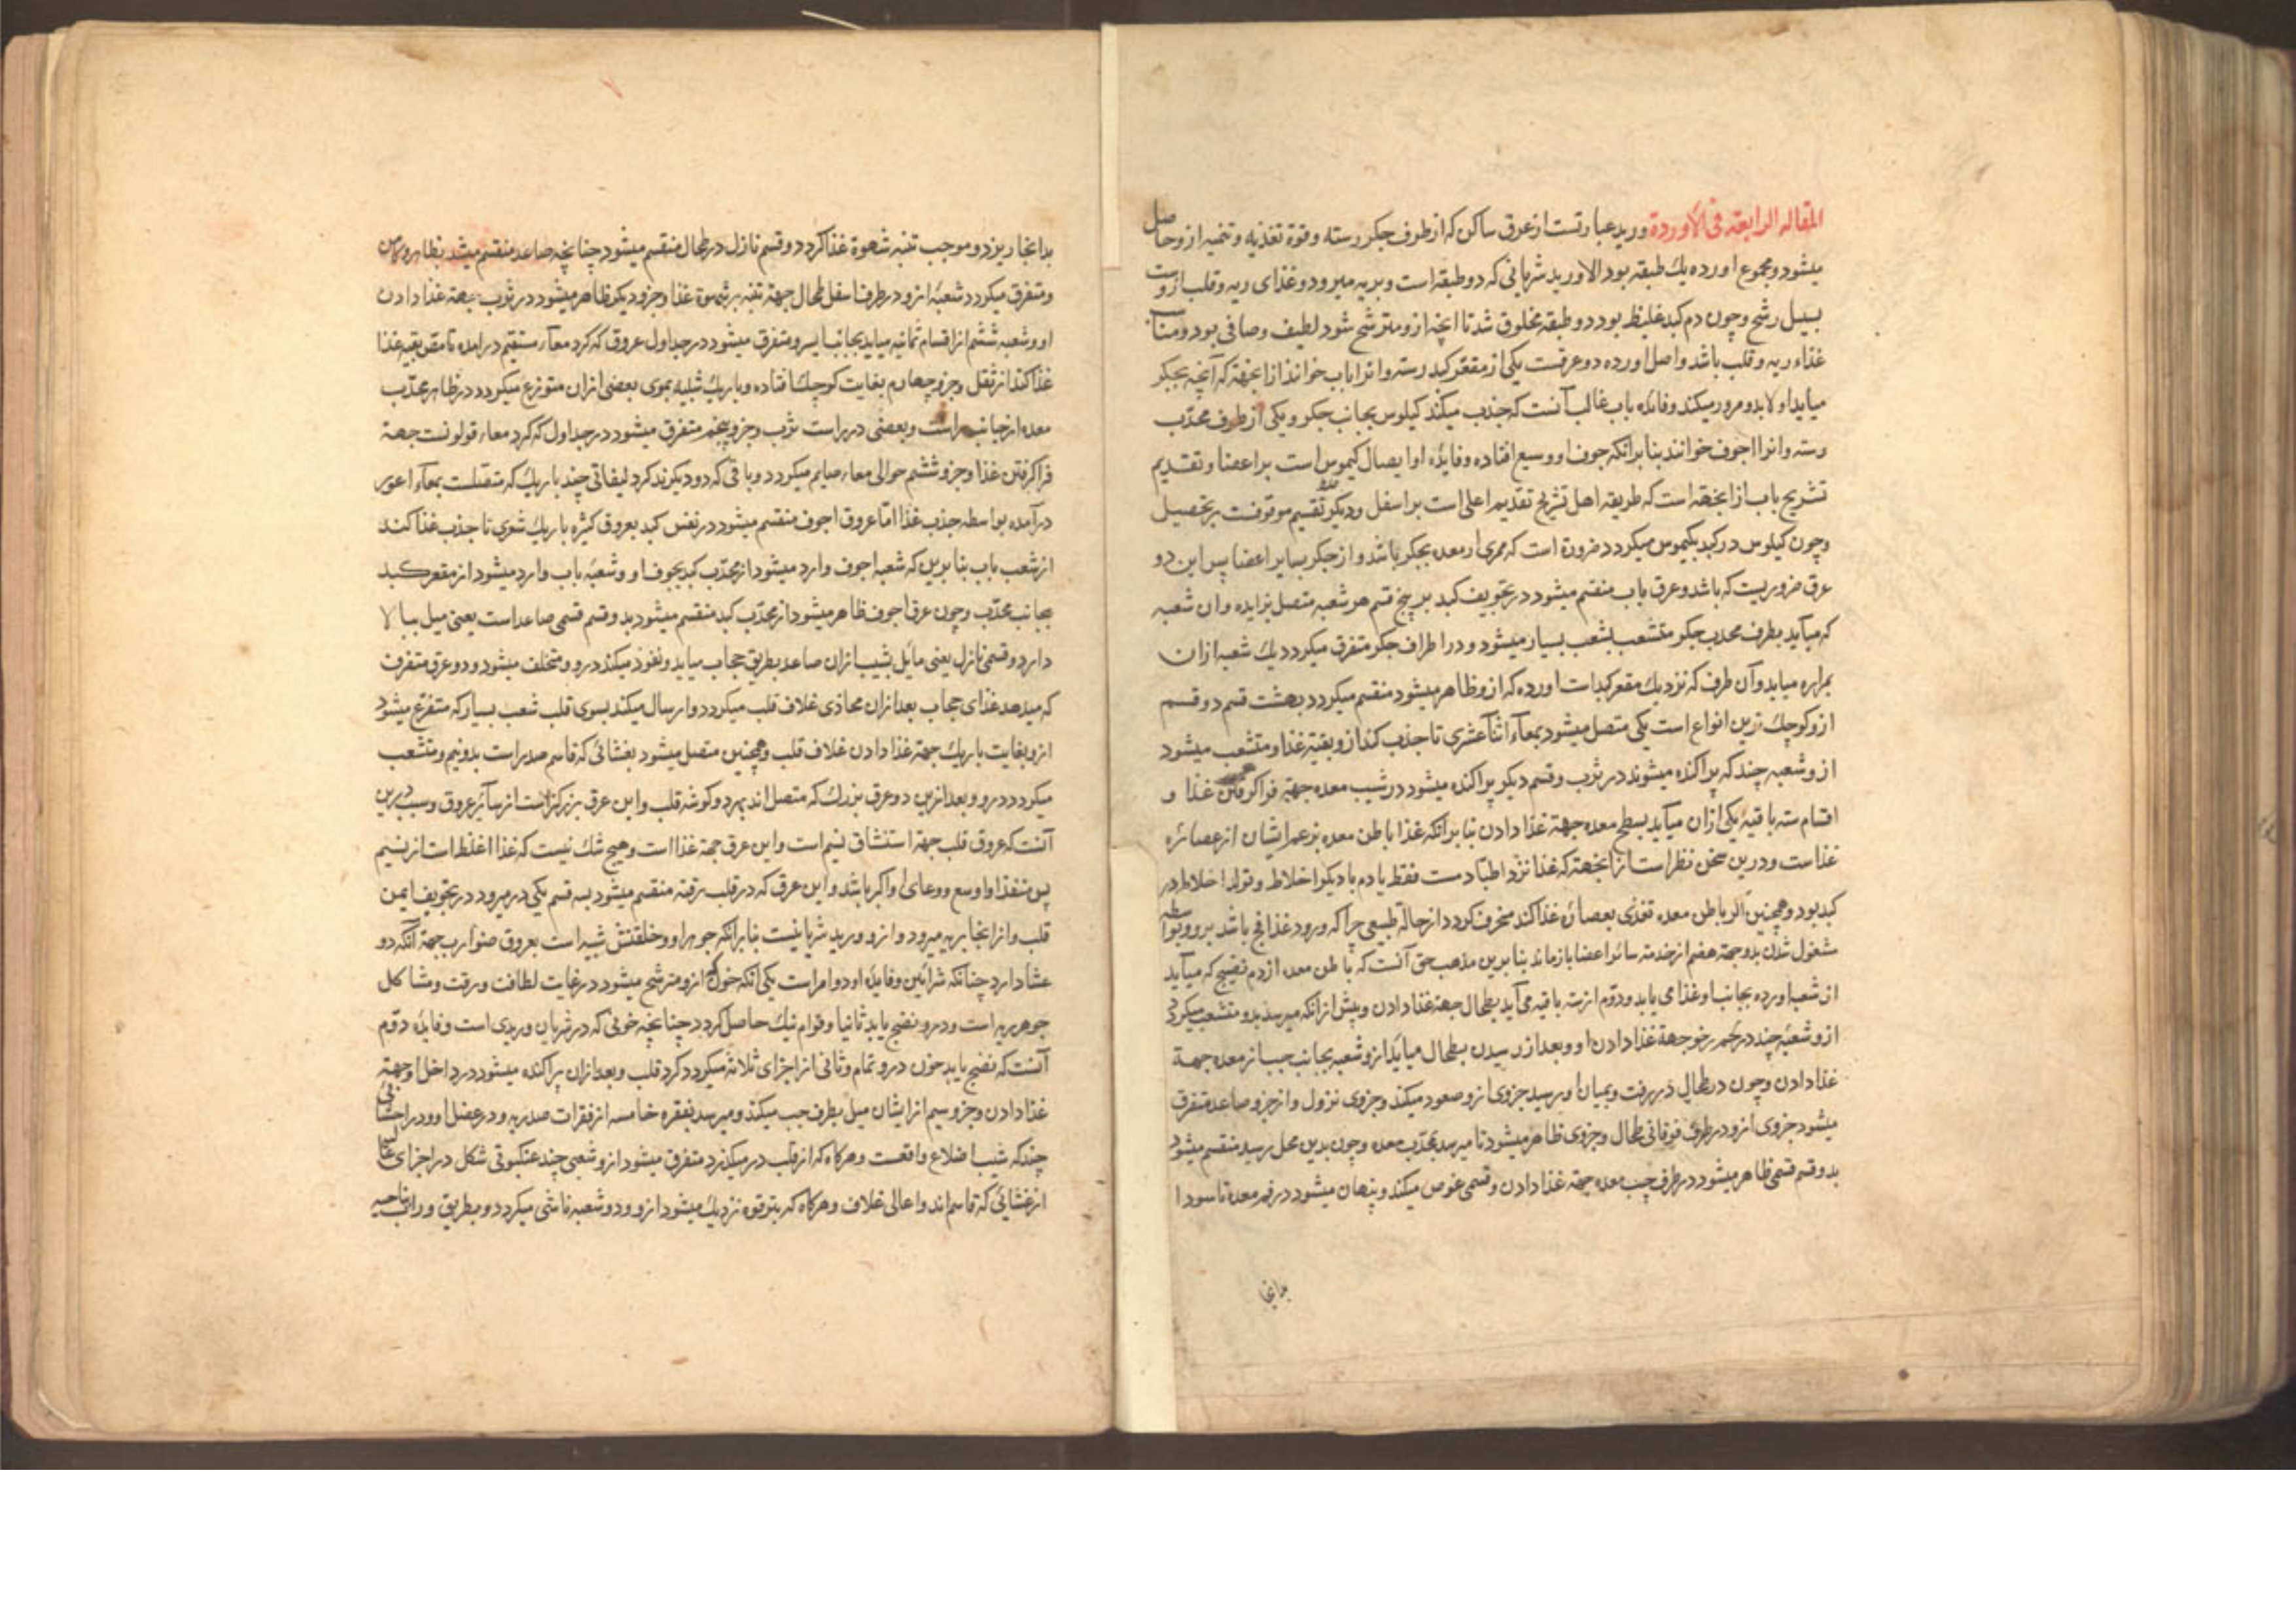 المقاله الرابعة فی الاوردة ورید عبارتست از عرق ساکن که از طرف جکر رسته و قوة تغذیه و تنمیه ازو حاصل
میشود و مجموع اورده یك طبقه بود الا ورید شریانی که دو طبقه است و بریه میرود و غذای ریه و قلب ازوست
بسبیل رشح و چون دم کبد غلیظ بود دو طبقه مخلوق شد تا انچه ازو مترشح شود لطیف و صافی بود و مناسب
غذاء ریه و قلب باشد و اصل اورده دو عرقست یکی از مقعر کبد رسته و انرا باب خوانند ازانجهة که آنچه بجکر
میاید اولا بدو مرور میکند و فائده باب غالب آنست که جذب میکند کیلوس بجانب جکر و یکی از طرف محدّب
رسته و انرا اجوف خوانند بنا برانکه جوف او وسیع افتاده و فایده او ایصال کیموس است بر اعضا و تقدیم
تشریح باب ازانجهة است که طریقه اهل تشریح تقدیم اعلی است بر اسفل و دیکر تقسیم موقوفست بر تحصیل
و چون کیلوس در کبد بکیموس میکردد ضرورة است که ممری از معده بجکر باشد و از جکر بسایر اعضا پس این دو
عرق ضروریست که باشد و عرق باب منقسم میشود در تجویف کبد بر پنج قسم هر شعبه متصل بزایده و ان شعبه
که میآید بطرف محدب جکر متشعب بشعب بسیار میشود و در اطراف جکر متفرق میکردد یك شعبه ازان
بمراره میاید و آن طرف که نزدیك مقعر کبد است اورده که ازو ظاهر میشود منقسم میکردد بهشت قسم دو قسم
ازو کوچك ترین انواع است یکی متصل میشود بمعآء اثنا عشری تا جذب کند ازو بقیّه غذا و متشعب میشود
ازو شعبه چند که پراکنده میشوند در ثرب و قسم دیکر پراکنده میشود در شیب معده جهة فرا کرفتن غذا و
اقسام سته باقیه یکی ازان میآید بسطح معده جهة غذا دادن بنا برانکه غذا باطن معده بزعم ایشان از عصائره
غذاست و درین سخن نظر است ازانجهة که غذا نزد اطبّا دمست فقط یا دم با دیکر اخلاط و تولد اخلاط در
کبد بود و همچنین اکر باطن معده تغذی بعصاره غذا کند منحرف کردد از حالة طبیعی چرا که ورود غذا فج باشد برو و بواسطه
مشغول شدن بدو جهة هضم از خدمة سائر اعضا بازماند بنا برین مذهب حق آنست که باطن معده از دم نضیج که میآید
از شعب اورده بجانب او غذا می یابد و دوّم از سته باقیه می آید بطحال جهة غذا دادن و پیش ازانکه میرسد بدو متشعب میکردد
ازو شعبه چند در جرم رخو جهة غذا دادن او و بعد از رسیدن بطحال میایذ ازو شعبه بجانب چپ از معده جهة
غذا دادن و چون در طحال در رفت و بمیان او رسید جزوی ازو صعود میکند و جزوی نزول و از جزو صاعد متفرق
میشود جزوی ازو در طرف فوقانی طحال و جزوی ظاهر میشود تا میرسد بمحدّب معده و چون بدین محل رسید منقسم میشود
بدو قسم قسمی ظاهر میشود در طرف چپ معده جهة غذا دادن و قسمی غوص میکند و پنهان میشود در فم معده تا سودا
بدانجا
بدانجا ریزد و موجب تنبه شهوة غذا کردد و قسم نازل در طحال منقسم میشود چنانچه صاعد منقسم میشد بظاهر و باطن
و متفرق میکردد شعبه ازو در طرف اسفل طحال جهة تنبه بر شهوة غذا و جزو دیکر ظاهر میشود در ثرب جهة غذا دادن
او و شعبه ششم از اقسام ثمانیه میاید بجانب ایسر و متفرق میشود در جداول عروق که کرد معآء مستقیم درامده تا مصّ بقیه غذا
غذا کند از ثفل و جزو چهارم بغایت کوچك افتاده و باریك شبیه بموی بعضی ازان متوزع میکردد در ظاهر محدّب
معده از جانب راست و بعضی در راست ثرب و جزو پنجم متفرق میشود در جداول که کرد معاء قولونست جهة
فرا کرفتن غذا و جزو ششم حوالی معاء صایم میکردد و باقی که دو دیکرند کرد لیفاتی چند باریك که متصلست بمعآء اعور
درآمده بواسطه جذب غذا امّا عروق اجوف منقسم میشود در نفس کبد بعروق کثیره باریك شعری تا جذب غذا کند
از شعب باب بنا برین که شعب اجوف وارد میشود از محدّب کبد بجوف او و شعبه باب وارد میشود از مقعر کبد
بجانب محدّب و چون عرق اجوف ظاهر میشود از محدّب کبد منقسم میشود بدو قسم قسمی صاعد است یعنی میل ببالا
دارد و قسمی نازل یعنی مائل بشیب ازان صاعد بطریق حجاب میاید و نفوذ میکند درو و متخلف میشود و دو عرق متفرق
که میدهد غذای حجاب بعد ازان محاذی غلاف قلب میکردد و ارسال میکند بسوی قلب شعب بسیار که متفرع میشود
ازو بغایت باریك جهة غذا دادن غلاف قلب و همچنین متصل میشود بغشائی که قاسم صدر است بدو نیم و متشعب
میکردد درو و بعد ازین دو عرق بزرك که متصل اند بهر دو کوشه قلب و این عرق بزرکتر است از سآئر عروق و سبب درین
آنست که عروق قلب جهة استنشاق نسیم است و این عرق جهة غذا است و هیچ شك نیست که غذا اغلظ است از نسیم
پس منفذ او اوسع و وعای او اکبر باشد و این عرق که در قلب رفته منقسم میشود بسه قسم یکی در میرود در تجویف ایمن
قلب و ازانجا بریه میرود و ازو ورید شریانیست بنا برانکه جوهر او و خلقتش شبیه است بعروق ضوارب جهة آنکه دو
غشا دارد چنانکه شرائین و فایده او دو امر است یکی آنکه خونی که ازو مترشح میشود در غایت لطافت و رقت و مشاکل
جوهر ریه است و درو نضج یابد ثانیا و قوام نیك حاصل کردد چنانچه خونی که در شریان وریدی است و فایده دوّم
آنست که نضج یابد خون درو تمام و ثانی از اجزای ثلاثه میکردد کرد قلب و بعد ازان پراکنده میشود در داخل او جهة
غذا دادن و جزو سیم از ایشان میل بطرف چپ میکند و میرسد بفقره خامسه از فقرات صدریه و در عضل او و در اجسامی
چند که شیب اضلاع واقعست و هرکاه که از قلب در میکذرد متفرق میشود ازو شعبی چند عنکبوتی شکل در اجزای عالیه
از غشائی که قاسم اند و اعالی غلاف و هرکاه که بترقوه نزدیك میشود ازو و دو شعبه ناشی میکردد و بطریق وراب بناحیه